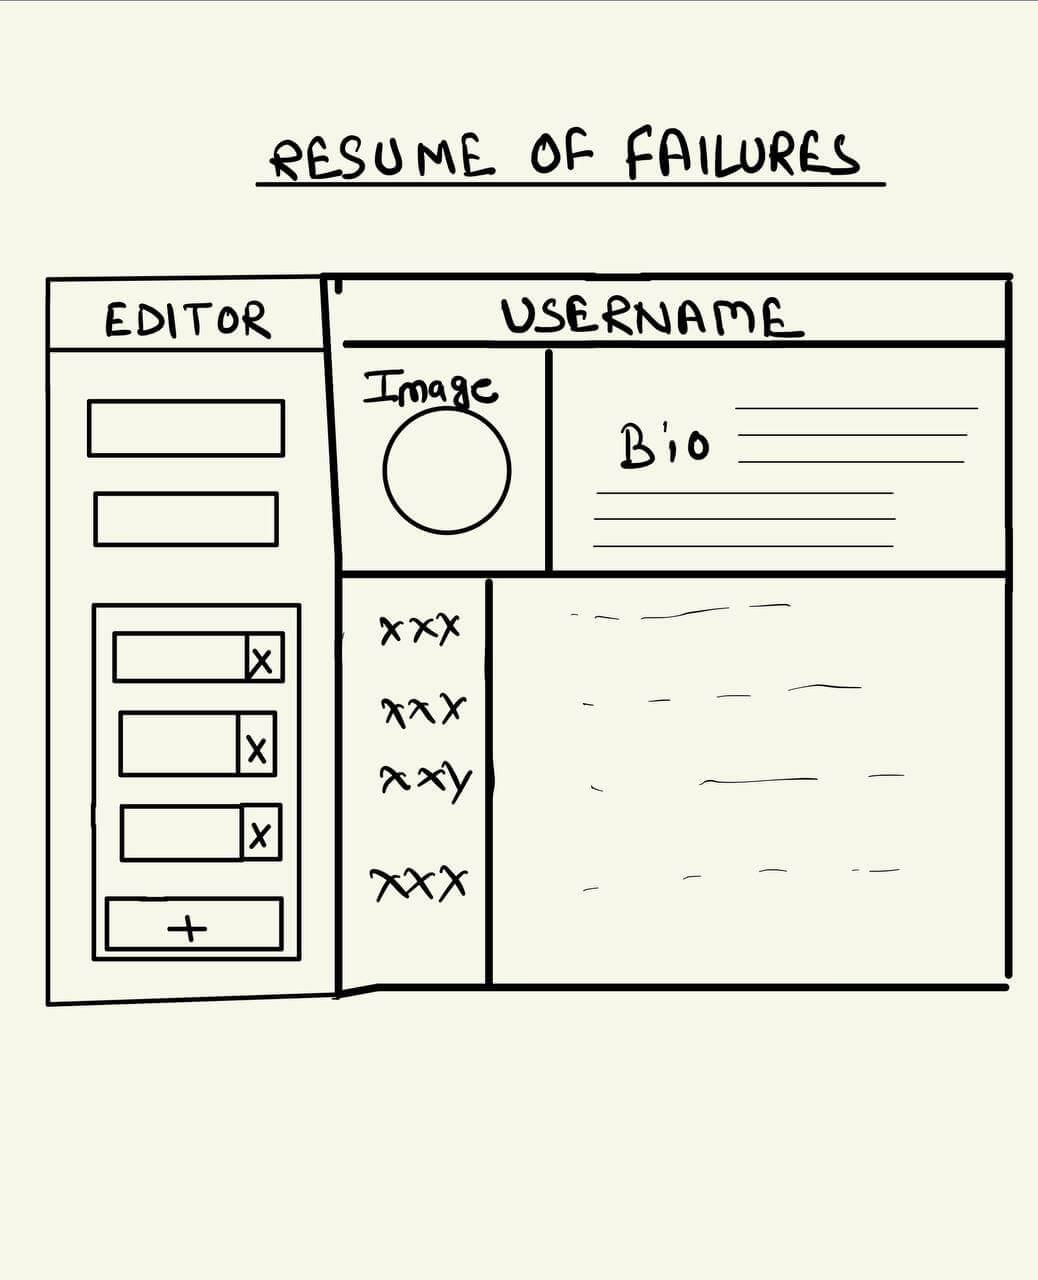 RESUME OF FAILURES
EDITOR
USERNAME
Image
Bio
X
X
X
+
xxx
xxx
xxy
xxx